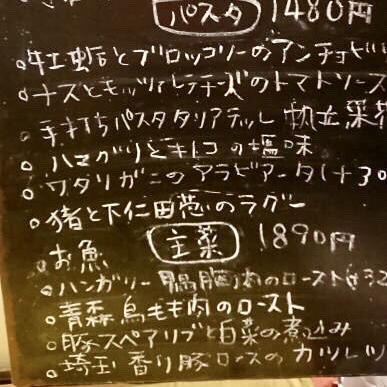 パスタ 1480円
。牡蛎とブロッコリーのアンチョビ
。ナスとモッツァレラチーズのトマトソース
。手打ちパスタタリアテッレ 帆立菜花
。ハマグリとキノコの塩味
。ワタリガニのアラビアータ(+30
。猪と下仁田葱のラグー
主菜 1890円
。お魚
。ハンガリー 鴨胸肉のロースト
。青森 鳥モモ肉のロースト
。豚スペアリブと白菜の煮込み
。埼玉 香り豚ロースのカツレツ